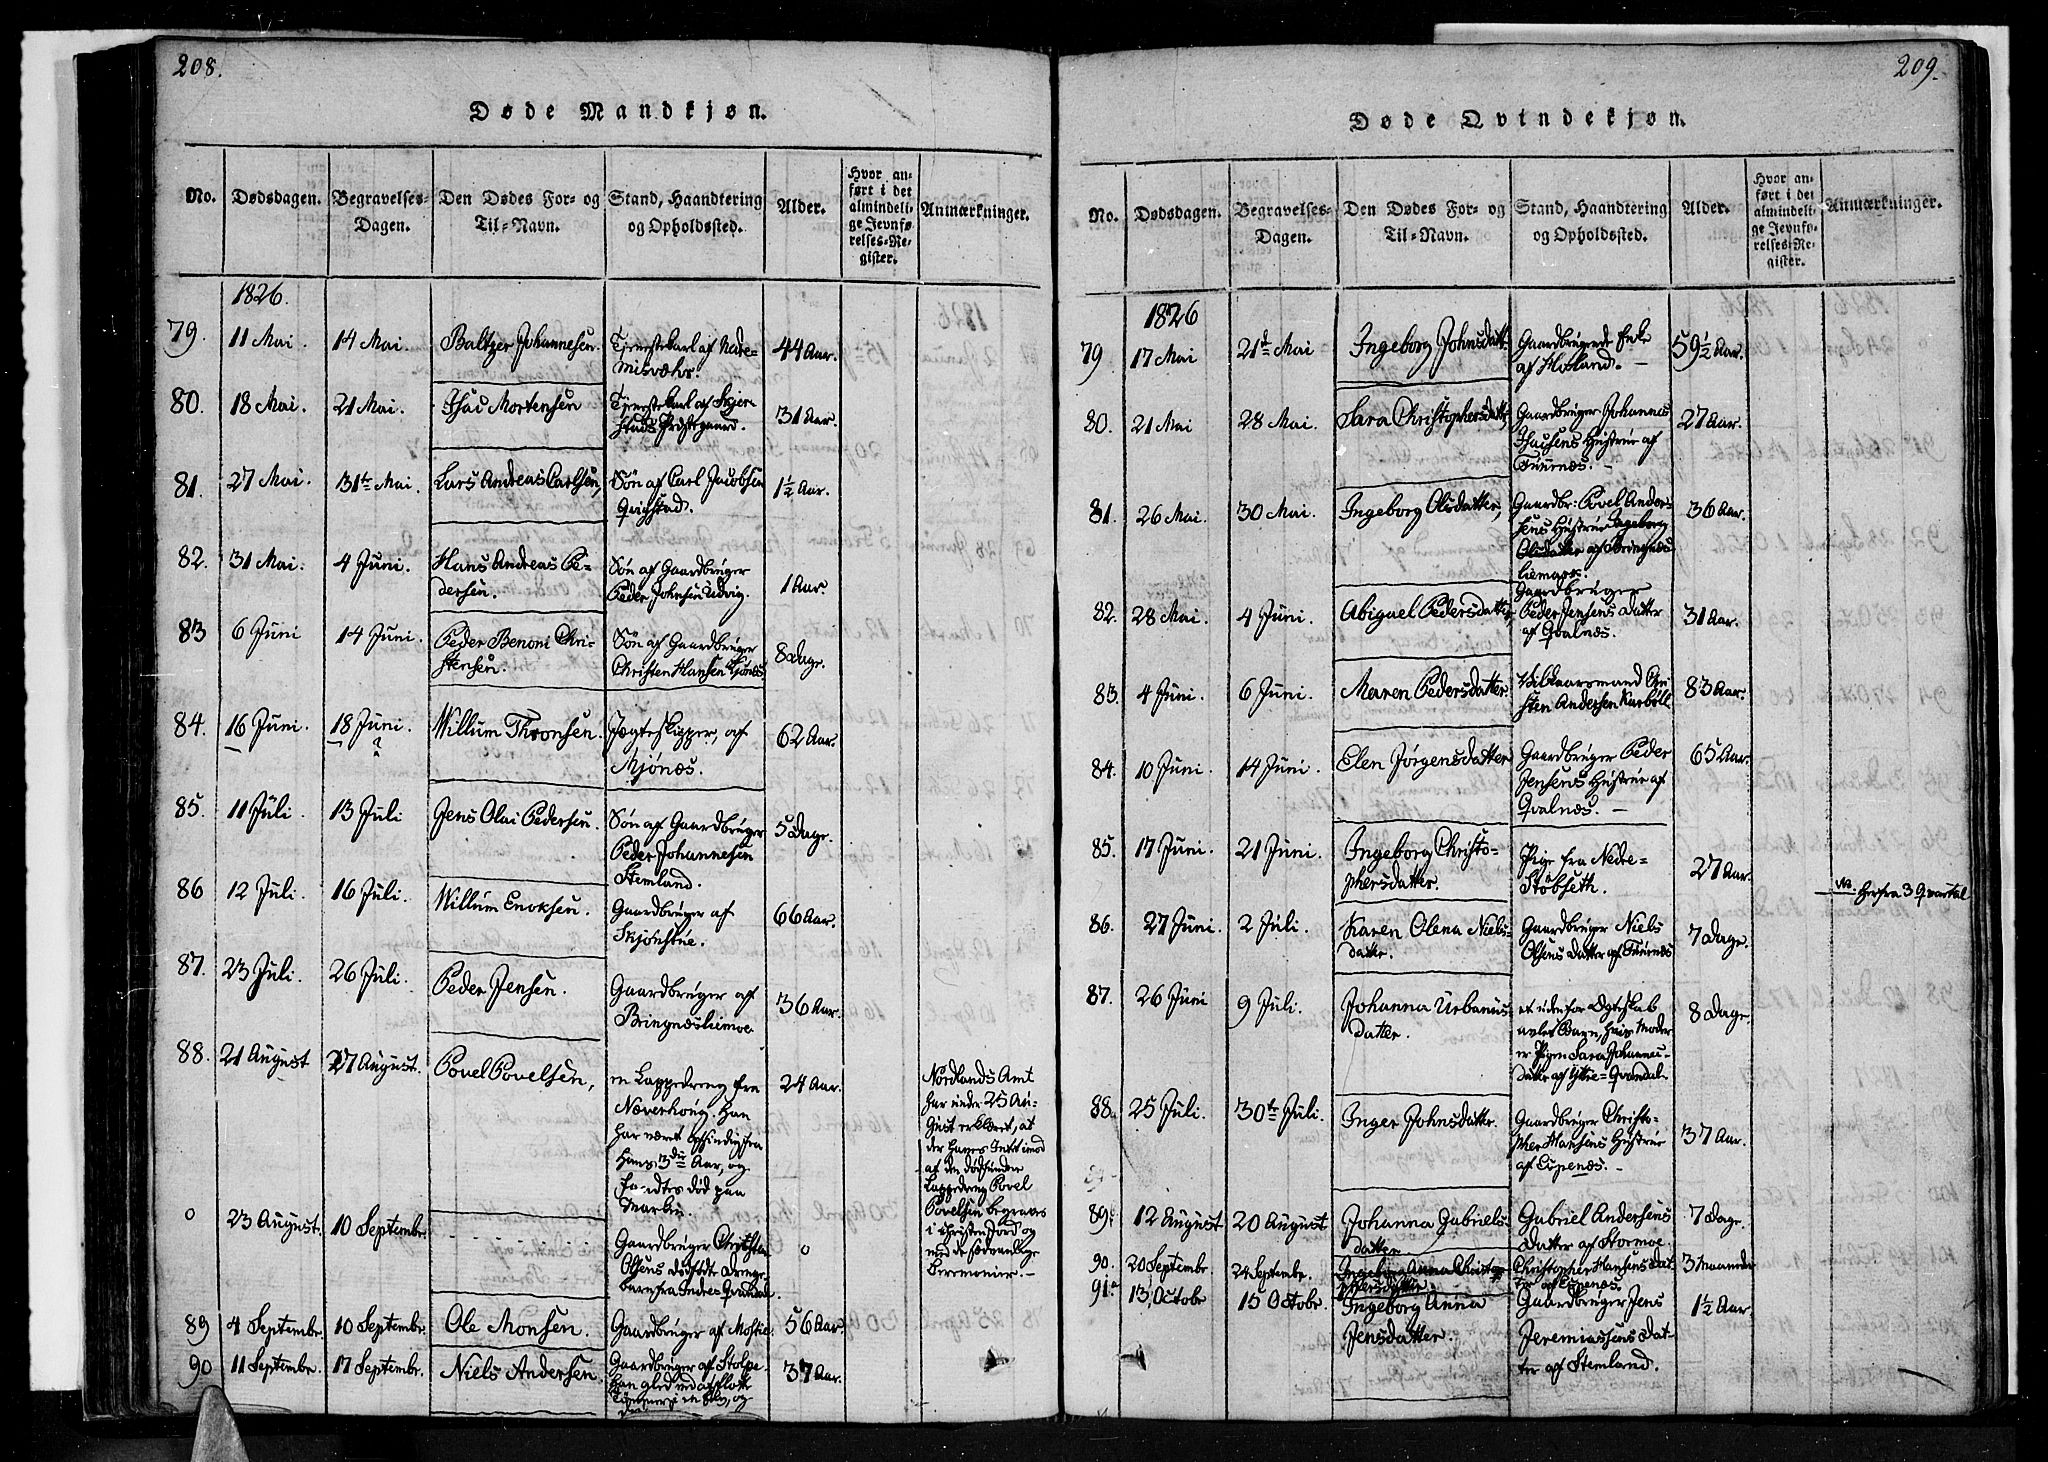 208.
Døde Mandkjøn.
No. Dødsdagen. Begravelses-Dagen. Den Dødes For- og Til-Navn. Stand, Haandtering og Opholdssted. Alder. Hvor anført i det almindelige Jevnførelses-Register. Anmærkninger.
1826.
79. 11 Mai. 14 Mai. Baltzer Johannesen. Tjenestekarl af Nedre-
Misvæhr. 44 Aar.
80. 18 Mai. 21 Mai. Isac Mortensen Tjenestekarl af Skjer-
stads Præstegaard. 31 Aar.
81. 27 Mai. 31te Mai. Lars Andreas Carlsen, Søn af Carl Jacobsen
Qvigstad. 1½ Aar.
82. 31 Mai. 4 Juni. Hans Andreas Pe-
dersen. Søn af Gaardbruger
Peder Johnsen Udvig. 1 Aar.
83 6 Juni 14 Juni. Peder Benoni Chri-
stensen. Søn af Gaardbruger
Christen Hansen Mjønes 8 Dage.
84. 16 Juni. 18 Juni. Willum Thronsen. Jægteskipper, af
Mjönæs. 62 Aar.
85. 11 Juli. 13 Juli Jens Olai Pedersen. Søn af Gaardbruger
Peder Johannesen
Stemland. 5 Dage.
86 12 Juli. 16 Juli. Willum Enoksen. Gaardbruger af
Skjönstue. 66 Aar.
87. 23 Juli. 26 Juli. Peder Jensen. Gaardbruger af
Bringnesliemoe 36 Aar.
88. 21 August 27 August. Povel Povelsen, en Lappedreng fra
Næverhoug. Han
har været afsindig fra
hans 3die Aar, og
fandtes død paa
Marken. 24 Aar.
Nordlands Amt
har under 25 Au-
gust erklæret, at
der haves Intet imod
at den dødfundne
Lappedreng Povel
Povelsen begraves
i christen Jord og
med de sædvanlige
Ceremonier. -
0 23 August. 10 Septembr. Gaardbruger Christen
Olsens dødfødte Drenge-
barn fra Indre Qvandal. 0
89 4 Septembr. 10 Septembr. Ole Monsen. Gaardbruger af Mostie. 56 Aar.
90 11 Septembr. 17 Septembr. Niels Andersen. Gaardbruger af Stolpe.
37 Aar.
209.
Døde Qvindekjøn.
No. Dødsdagen. Begravelses-Dagen. Den Dødes For- og Til-Navn. Stand, Haandtering og Opholdssted. Alder. Hvor anført i det almindelige Jevnførelses-Register. Anmærkninger.
1826
79 17 Mai 21de Mai Ingeborg Johnsdatt. Gaardbrugerd Enke
af Hosland. - 59½ Aar.
80. 21 Mai 28 Mai. Sara Christophersdatter, Gaardbruger Johannes
Isacsens Hustrue af
Tuurnæs. - 27 Aar.
81. 26 Mai. 30 Mai. Ingeborg Olsdatter, Gaardbr: Povel Ander-
sens Hustrue Ingeborg
Olsdatter af Bringnæs
liemark. 36 Aar.
82. 28 Mai. 4 Juni. Abigael Pedersdatter, Gaardbruger
Peder Jensens Datter
af Qvalnæs. 31 Aar.
83. 4 Juni. 6 Juni. Maren Pedersdatter. Vilkaarsmand Chri-
sten Andersen Karbøll. 83 Aar.
84. 10 Juni. 14 Juni. Elen Jørgensdatter Gaardbruger Peder
Jensens Hustrue af
Qvalnæs. - 65 Aar.
85. 17 Juni. 21 Juni. Ingeborg Christo-
phersdatter. Pige fra Nedre-
Støbseth. 27 Aar.
NB. herfra 3 Qvartal
86. 27 Juni. 2 Juli. Karen Olena Niels-
datter. Gaardbruger Niels
Olsens Datter af Tuurnæs 7 Dage.
87. 26 Juni 9 Juli. Johanna Urbanus-
datter. et uden for Ægteskab
avlet Barn, hvis Moder
er Pigen Sara Johannes-
datter af Yttre-Qvandal. 8 Dage.
88. 25 Juli. 30te Juli. Inger Johnsdatter. Gaardbruger Christo-
pher Hansens Hustrue
af Espenæs. - 37 Aar.
89. 12 August 20 August Johanna Gabriels-
datter. Gabriel Andersens
Datter af Stormoe. 7 Dage.
90. 20 Septembr. 24 Septembr. Ingeborg Anna Christop-
phersdatter Christopher Hansens Dat-
ter af Espenæs. 3 Maaneder
91. 13 Octobr 15 Octobr. Ingeborg Anna
Jensdatter. Gaardbruger Jens
Jeremiassens Dat-
ter af Stemland. 1½ Aar.